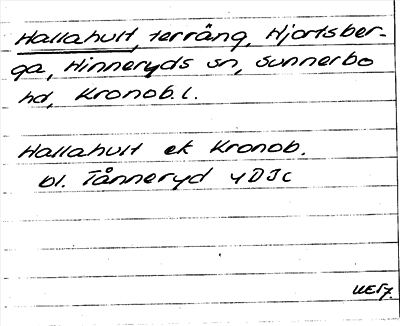 Hallahult, terräng, Hjortsber-
ga, Hinneryds sn, Sunnerbo
hd, Kronob.l.
Hallahult ek Kronob.
bl. Tånneryd 4D Ic